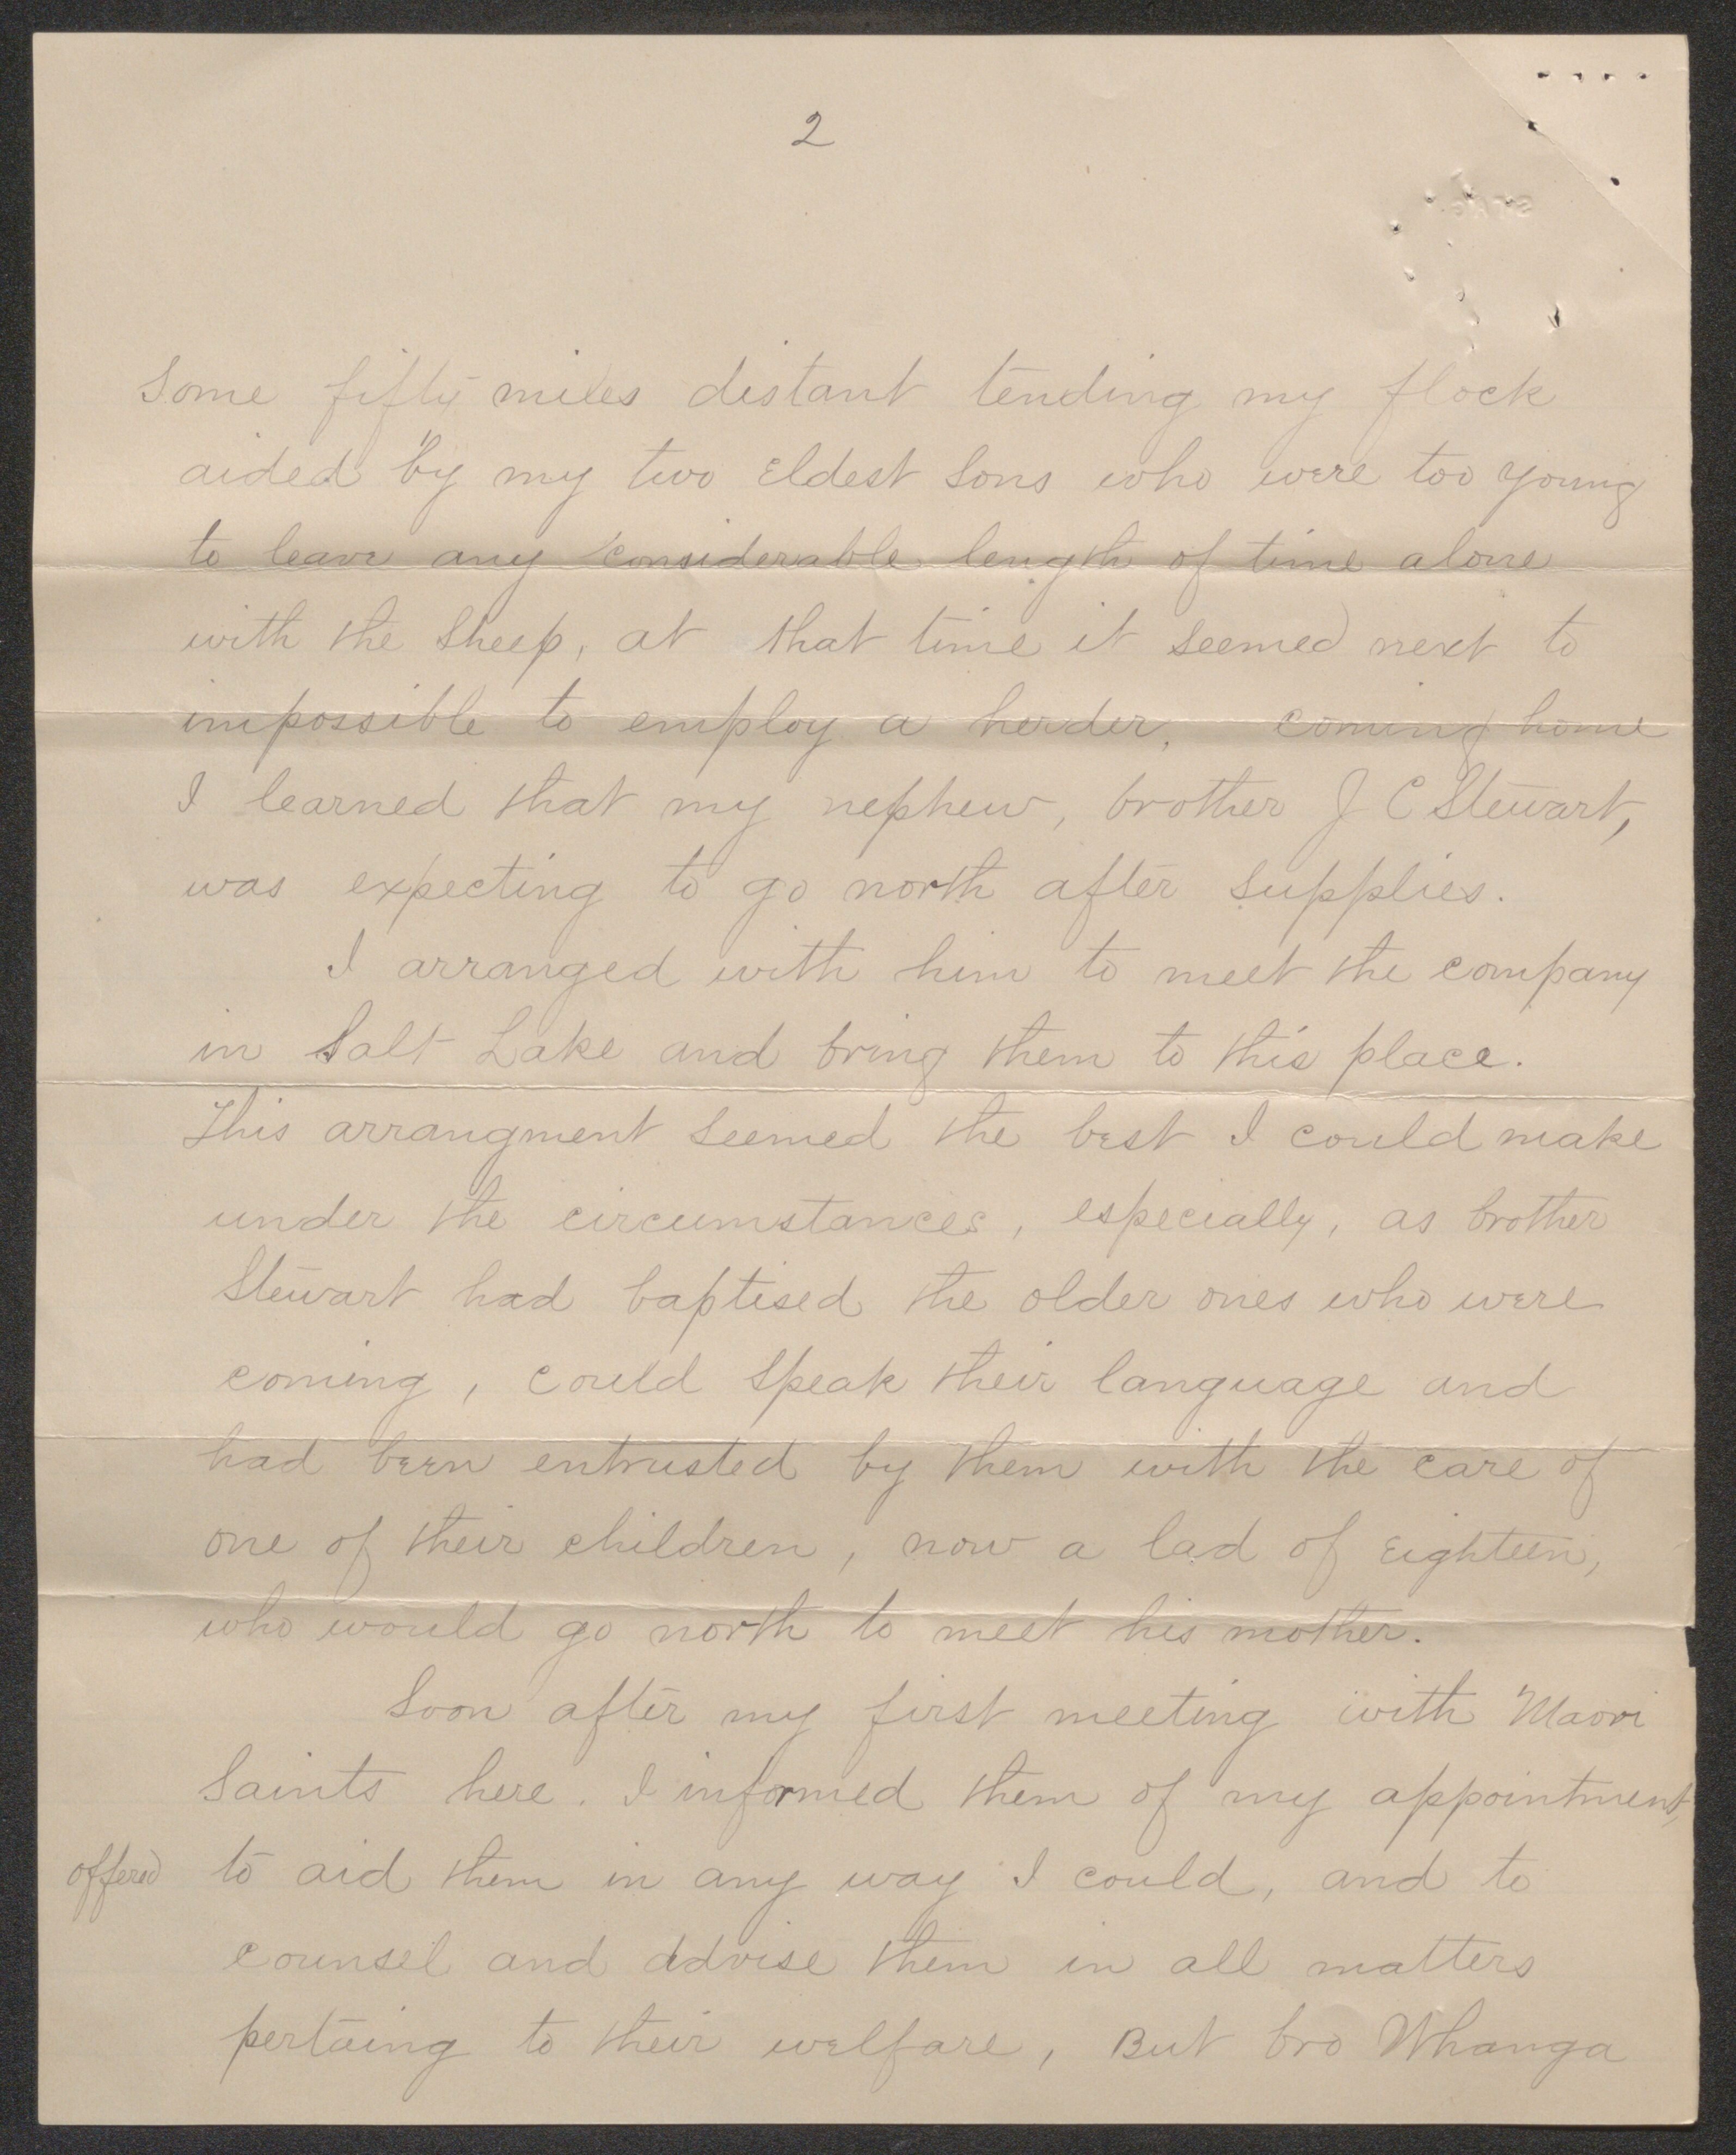 2
Some fifty miles distant tending my flock
aided by my two Eldest Sons who were too young
to leave any considerable length of time alone
with the Sheep, at that time it seemed next to
impossible to employ a herder, coming home
I learned that my nephew, brother J C Stewart,
was expecting to go north after supplies.
I arranged with him to meet the company
in Salt Lake and bring them to this place.
This arrangment seemed the best I could make
under the circumstances, especially, as brother
Stewart had baptised the older ones who were
coming, could speak their language and
had been entrusted by them with the care of
one of their children, now a lad of Eighteen,
who would go north to meet his mother.
Soon after my first meeting with Maori
Saints here. I informed them of my appointment,
offered to aid them in any way I could, and to
counsel and advise them in all matters
pertaing to their welfare, But bro Whanga